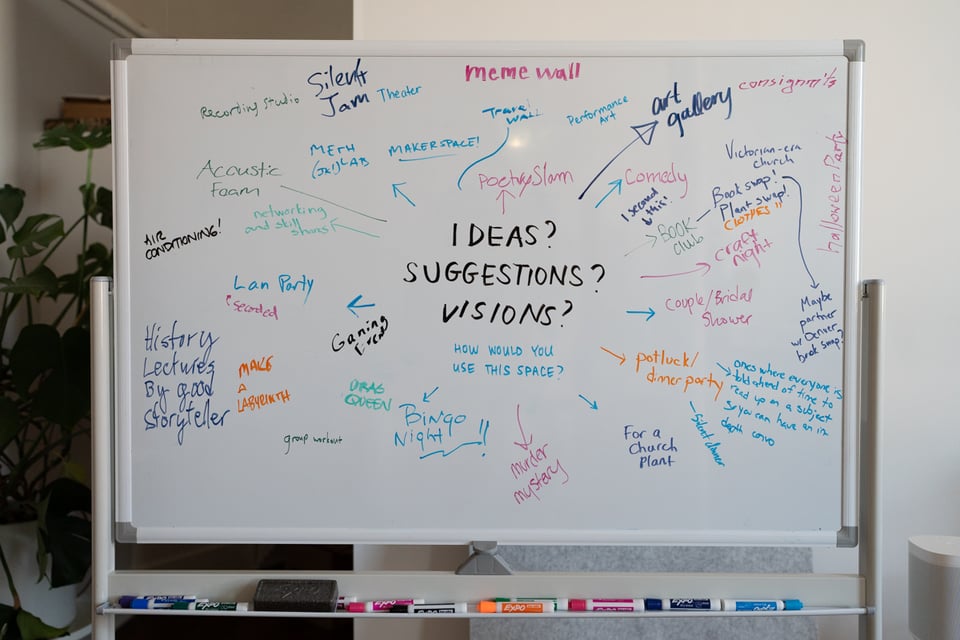 meme wall
Silent
Jam Theater
Recording Studio
Travel
WALL
Performance
Art
art
gallery
consignmits
METH
(JK!) LAB
MAKERSPACE!
Acoustic
Foam
Poetry Slam
Comedy
Victorian-era
church
halloween Party
networking
and skill
shares
I second
this!
Book swap!
Plant swap!
CLOTHES!!
AIR
CONDITIONING!
BOOK
club
craft
night
IDEAS?
SUGGESTIONS?
VISIONS?
Lan Party
Seconded
Couple/Bridal
Shower
Maybe
partner
w/ Denver
book swap?
Gaming
Event
HOW WOULD YOU
USE THIS SPACE?
History
Lectures
By good
Storyteller
MAKE
A
LABYRINTH
DRAG
QUEEN
potluck/
dinner party
ones where everyone is
told ahead of time to
read up on a subject
so you can have an in
depth convo
Silent dinner
Bingo
Night!!
group workout
murder
mystery
For a
Church
Plant
EXPO
EXPO
EXPO
EXPO
EXPO
EXPO
EXPO